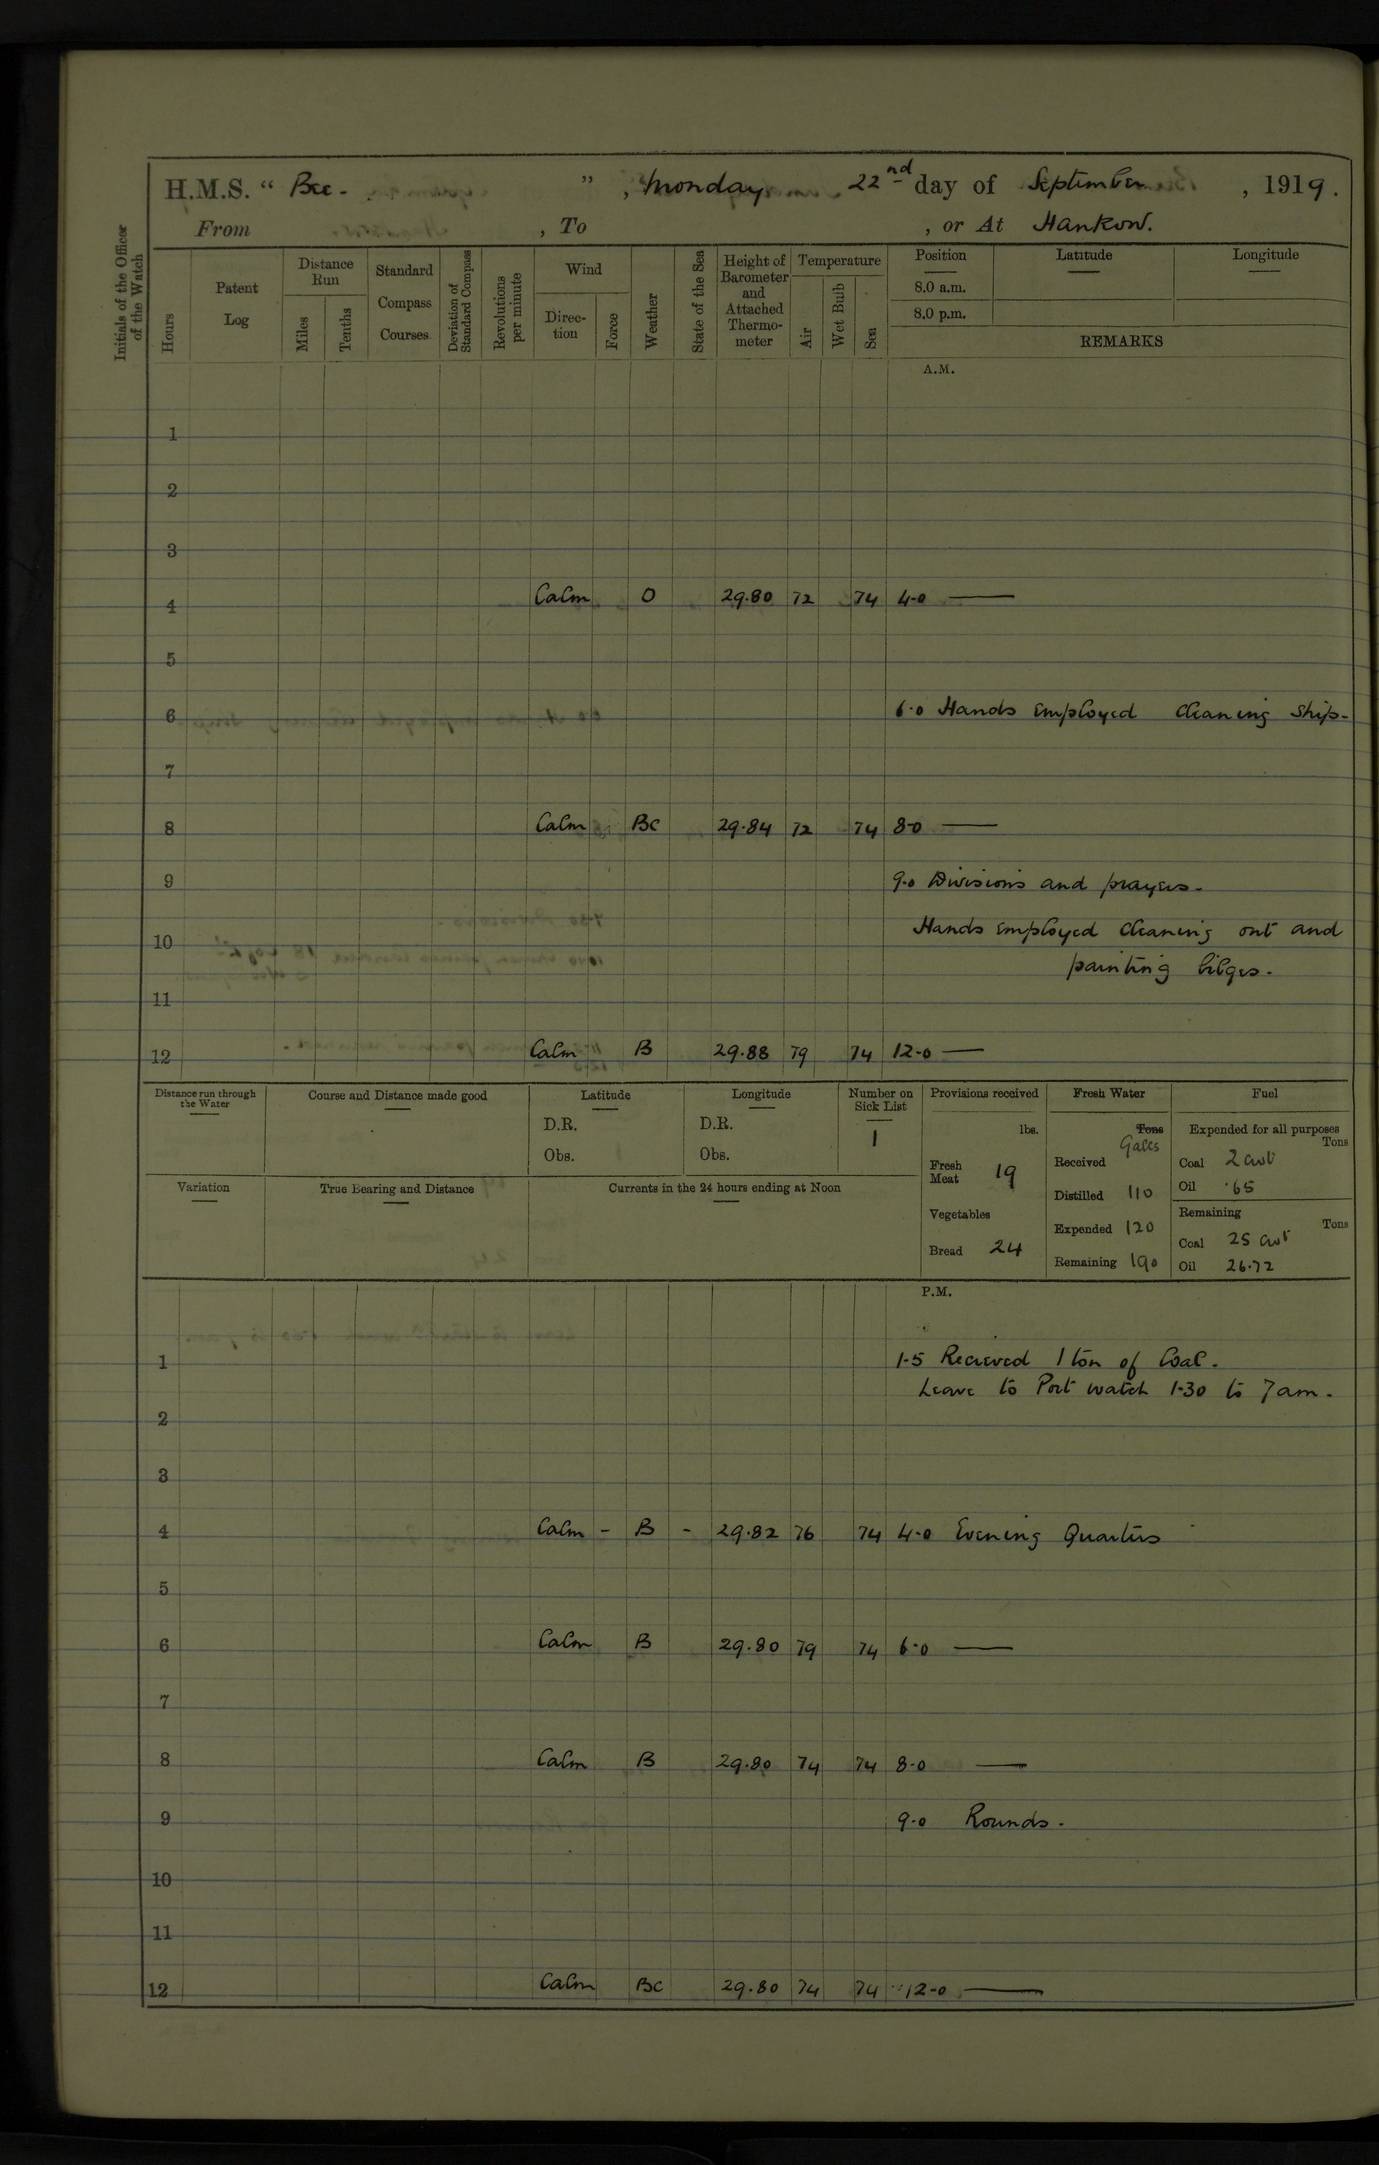 H.M.S. “ Bee. ” , Monday 22nd day of September , 1919.
From , To , or At Hankow.
Initials of the Officer of the Watch
Hours
Patent Log
Distance Run
Miles
Tenths
Standard Compass Courses
Deviation of Standard Compass
Revolutions per minute
Wind
Direction
Force
Weather
State of the Sea
Height of Barometer and Attached Thermometer
Temperature
Air
Wet Bulb
Sea
Position
8.0 a.m.
8.0 p.m.
Latitude
Longitude
REMARKS
A.M.
1
2
3
4 Calm O 29.80 72 74 4.0 —
5
6 6.0 Hands employed cleaning ship-
7
8 Calm BC 29.84 72 74 8.0 —
9 9.0 Divisions and prayers.
Hands employed cleaning out and
10
painting bilges.
11
12 Calm B 29.88 79 74 12.0 —
Distance run through the Water
Course and Distance made good
Latitude
D.R.
Obs.
Longitude
D.R.
Obs.
Number on Sick List
1
Variation
True Bearing and Distance
Currents in the 24 hours ending at Noon
Provisions received
lbs.
Fresh Meat 19
Vegetables
Bread 24
Fresh Water
Tons
Galls
Received
Distilled 110
Expended 120
Remaining 190
Fuel
Expended for all purposes
Tons
Coal 2 cwt
Oil .65
Remaining
Tons
Coal 25 cwt
Oil 26.72
P.M.
1 1.5 Recieved 1 ton of Coal.
Leave to Port watch 1-30 to 7am.
2
3
4 Calm - B - 29.82 76 74 4.0 Evening Quarters
5
6 Calm B 29.80 79 74 6.0 —
7
8 Calm B 29.80 74 74 8.0 —
9 9.0 Rounds.
10
11
12 Calm BC 29.80 74 74 12.0 —